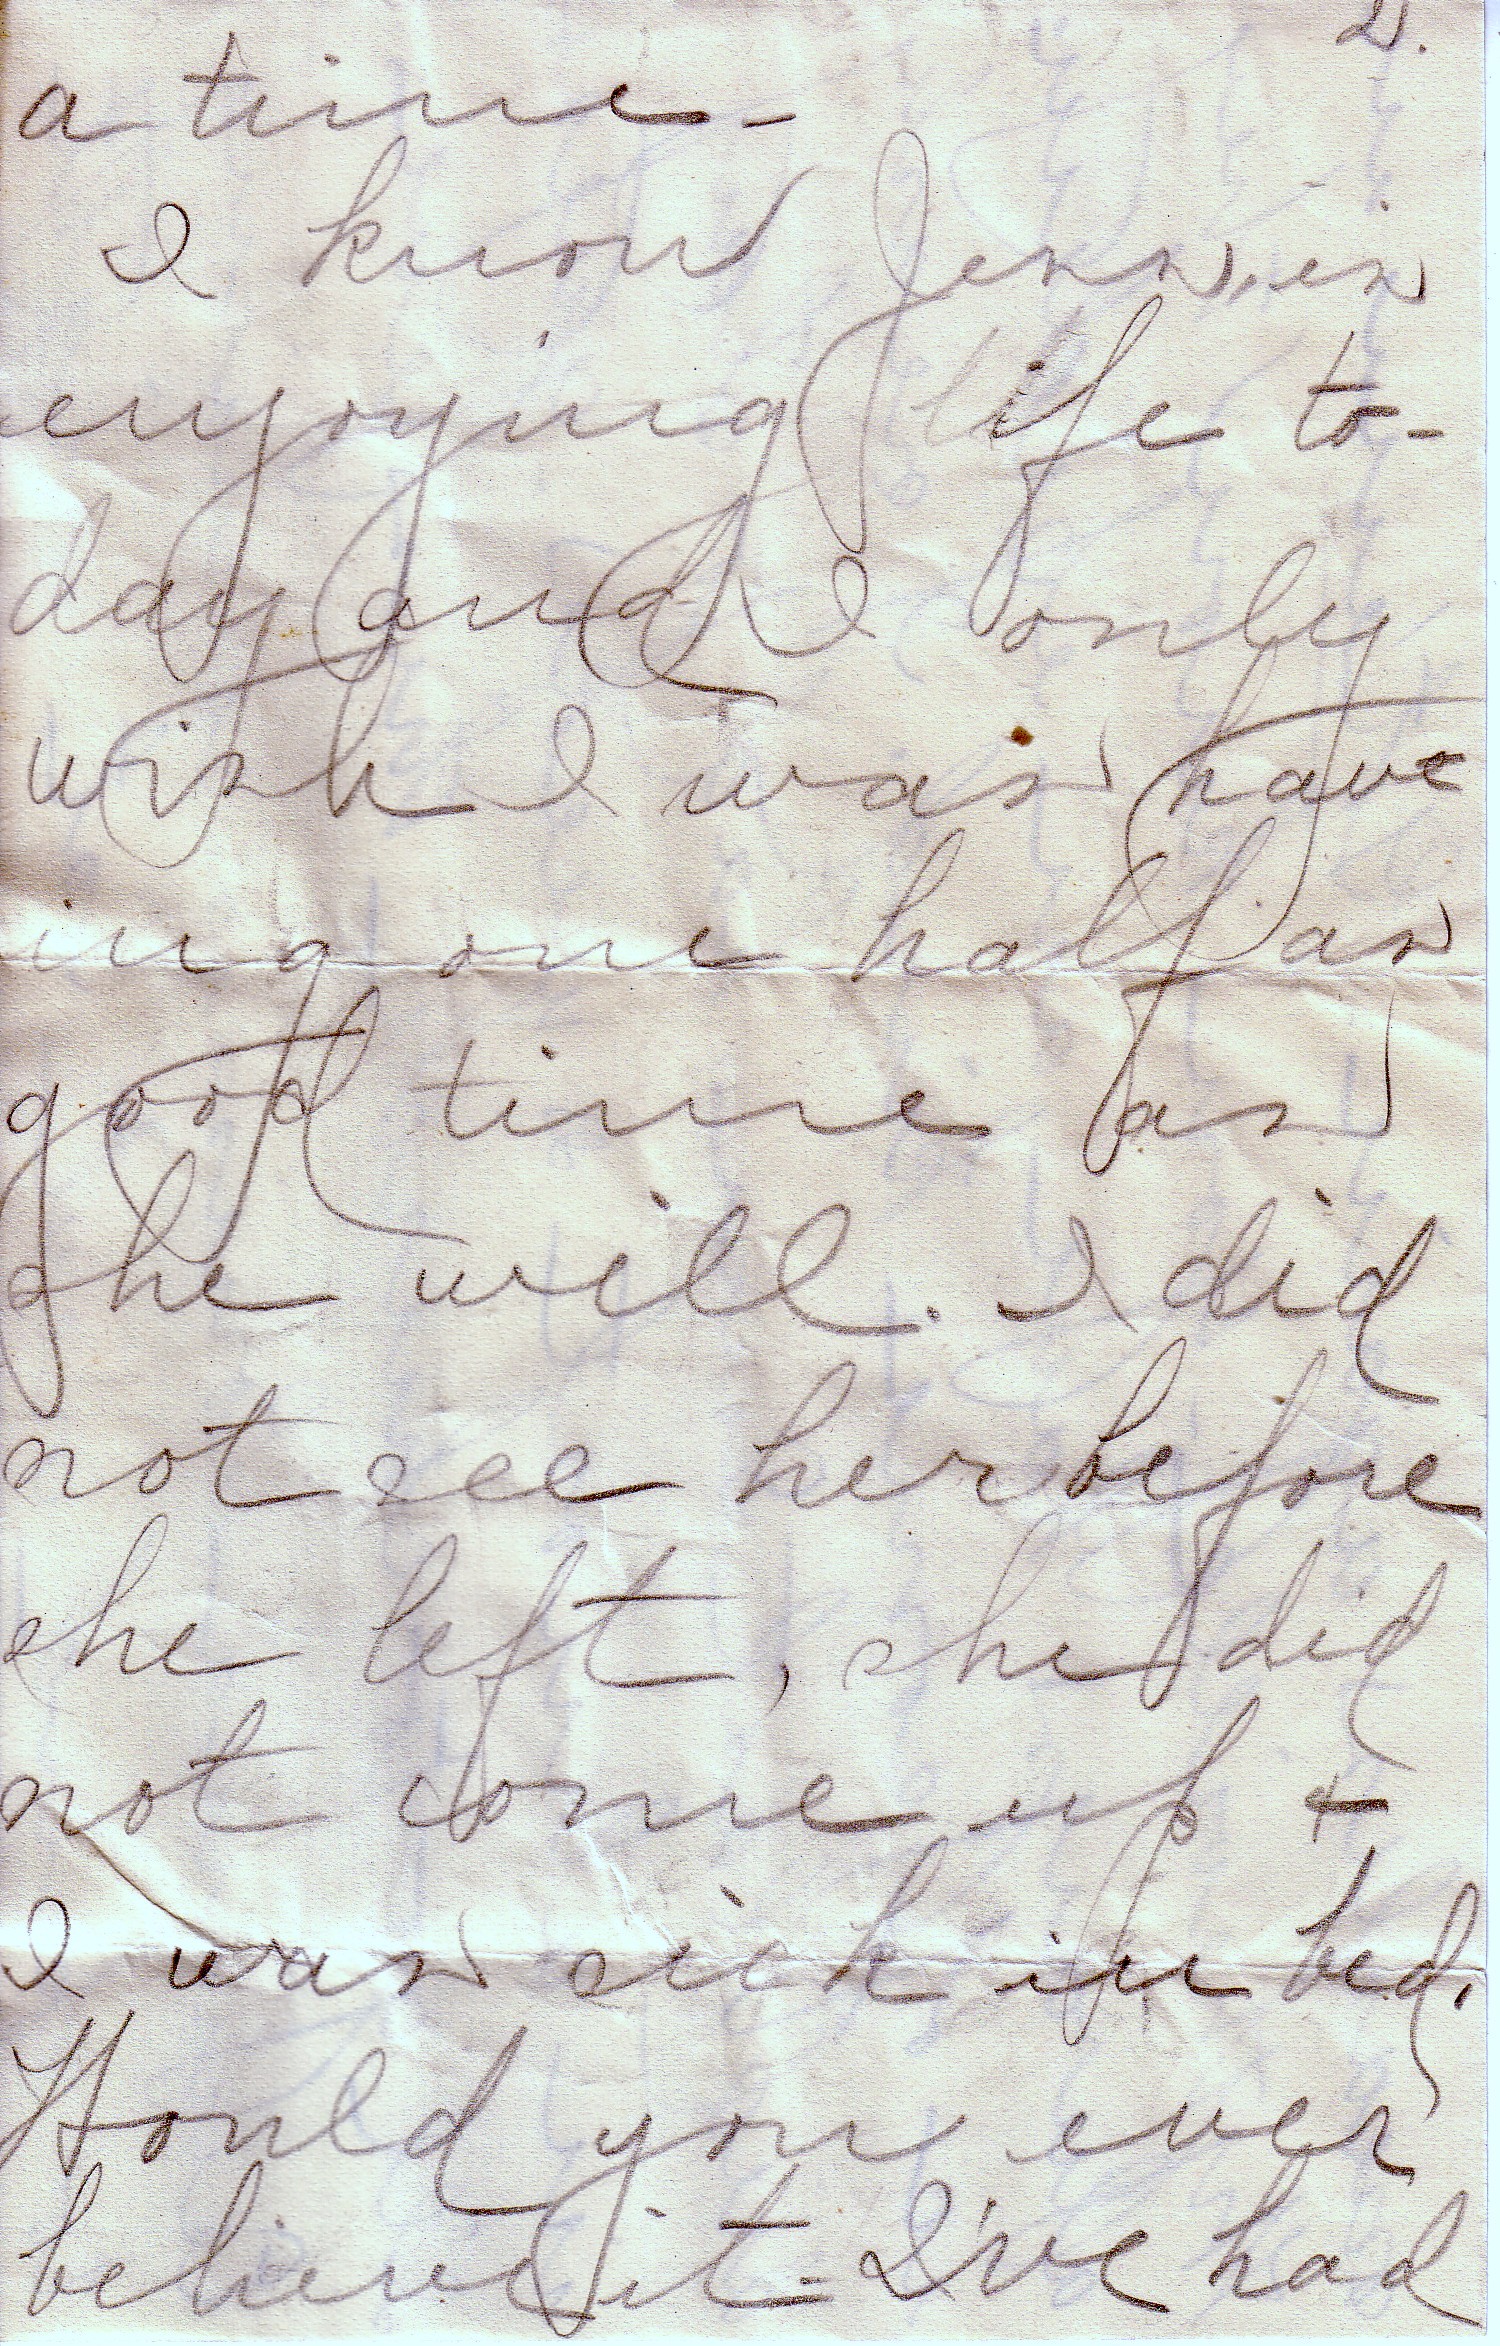 2.
a time -
I know Jess, is
enjoying life to-
day and I only
wish I was have
ing one half as
good time as
she will. I did
not see her before
she left, she did
not come up +
I was sick in bed.
Would you ever
believe it - I've had